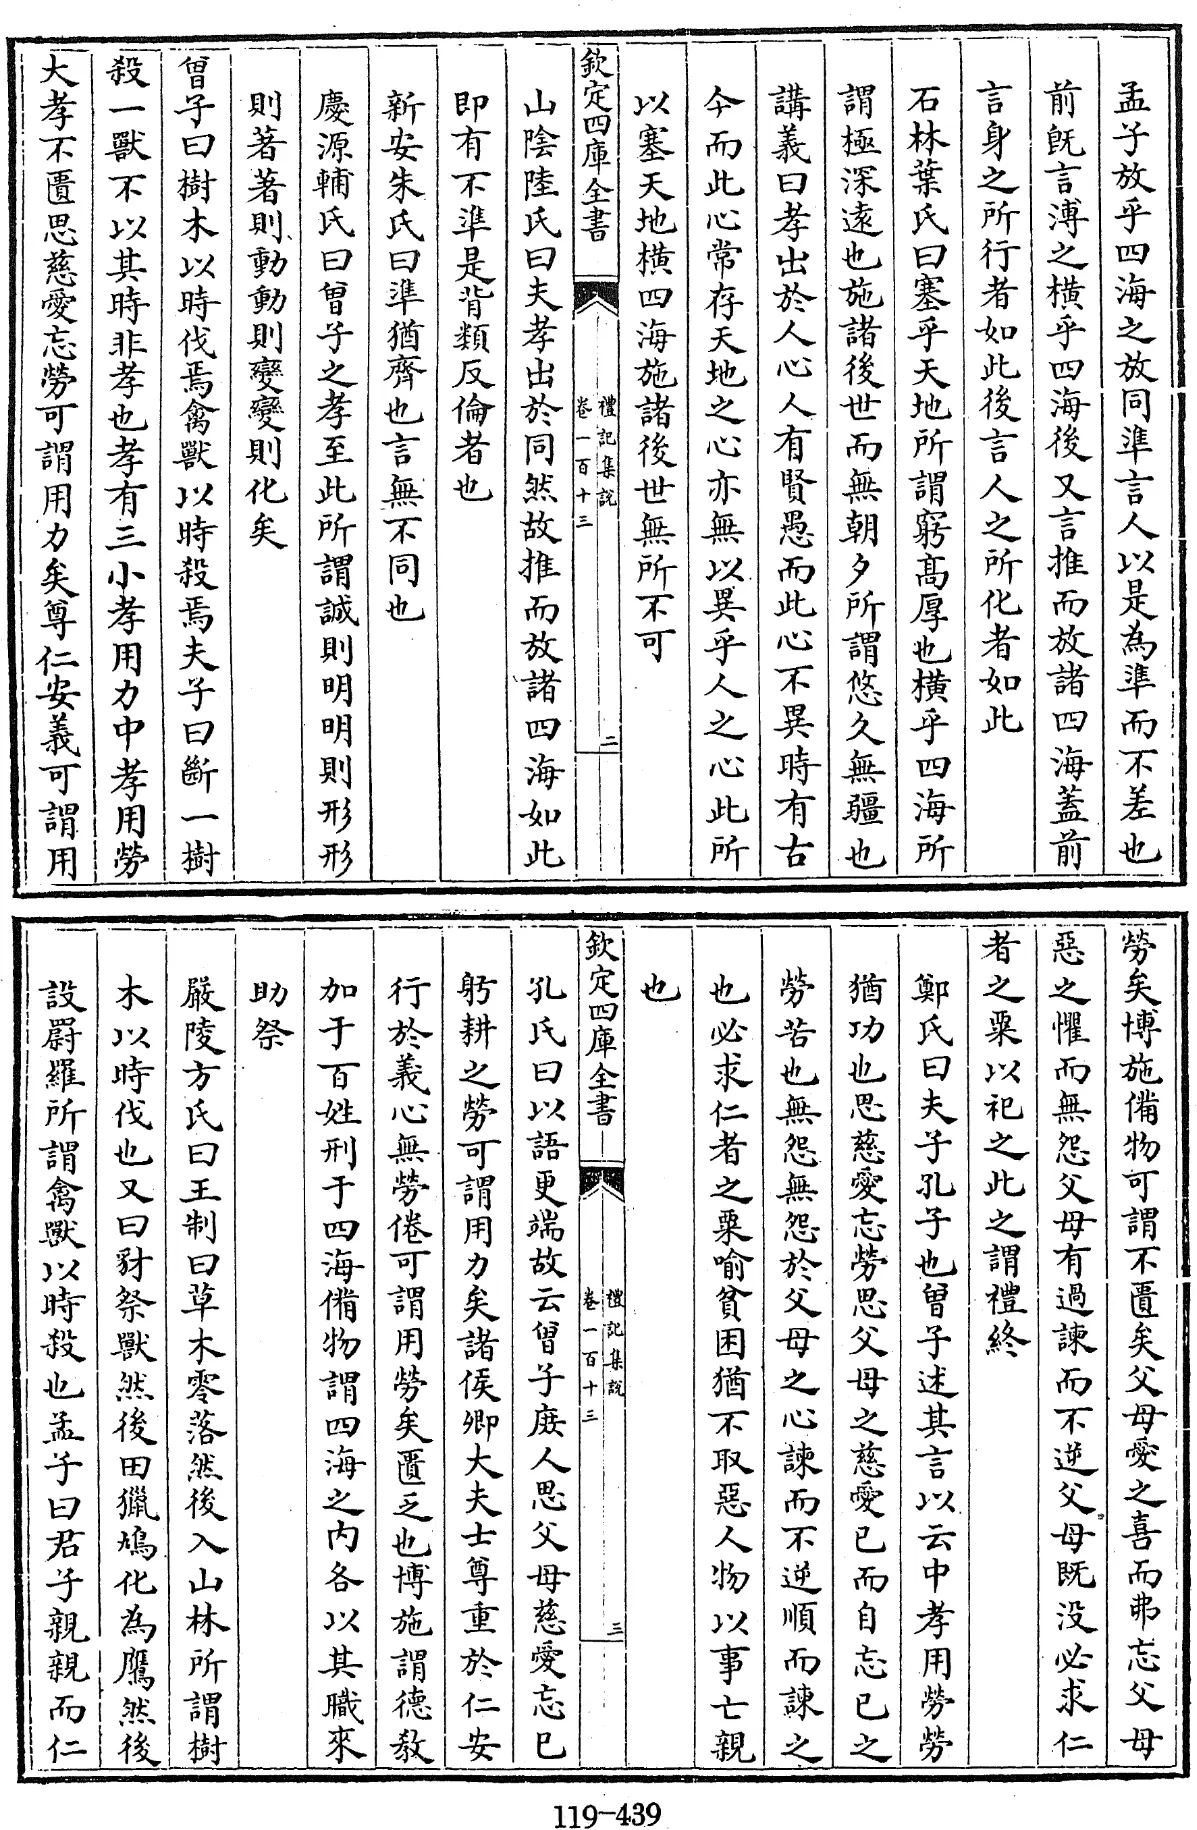 孟子放乎四海之放同準言人以是為準而不差也
前既言溥之橫乎四海後又言推而放諸四海蓋前
言身之所行者如此後言人之所化者如此
石林葉氏曰塞乎天地所謂窮髙厚也橫乎四海所
謂極深遠也施諸後世而無朝夕所謂悠久無疆也
講義曰孝出於人心人有賢愚而此心不異時有古
今而此心常存天地之心亦無以異乎人之心此所
以塞天地橫四海施諸後世無所不可
欽定四庫全書
禮記集說
卷一百十三
二
山陰陸氏曰夫孝出於同然故推而放諸四海如此
即有不準是背類反倫者也
新安朱氏曰準猶齊也言無不同也
慶源輔氏曰曾子之孝至此所謂誠則明明則形形
則著著則動動則變變則化矣
曾子曰樹木以時伐焉禽獸以時殺焉夫子曰斷一樹
殺一獸不以其時非孝也孝有三小孝用力中孝用勞
大孝不匱思慈愛忘勞可謂用力矣尊仁安義可謂用
勞矣博施備物可謂不匱矣父母愛之喜而弗忘父母
惡之懼而無怨父母有過諫而不逆父母既没必求仁
者之粟以祀之此之謂禮終
鄭氏曰夫子孔子也曾子述其言以云中孝用勞勞
猶功也思慈愛忘勞思父母之慈愛已而自忘已之
勞苦也無怨無怨於父母之心諫而不逆順而諫之
也必求仁者之粟喻貧困猶不取惡人物以事亡親
也
欽定四庫全書
禮記集說
卷一百十三
三
孔氏曰以語更端故云曾子庶人思父母慈愛忘已
躬耕之勞可謂用力矣諸侯卿大夫士尊重於仁安
行於義心無勞倦可謂用勞矣匱乏也博施謂德教
加于百姓刑于四海備物謂四海之内各以其職來
助祭
嚴陵方氏曰王制曰草木零落然後入山林所謂樹
木以時伐也又曰豺祭獸然後田獵鳩化為鷹然後
設罻羅所謂禽獸以時殺也孟子曰君子親親而仁
119-439